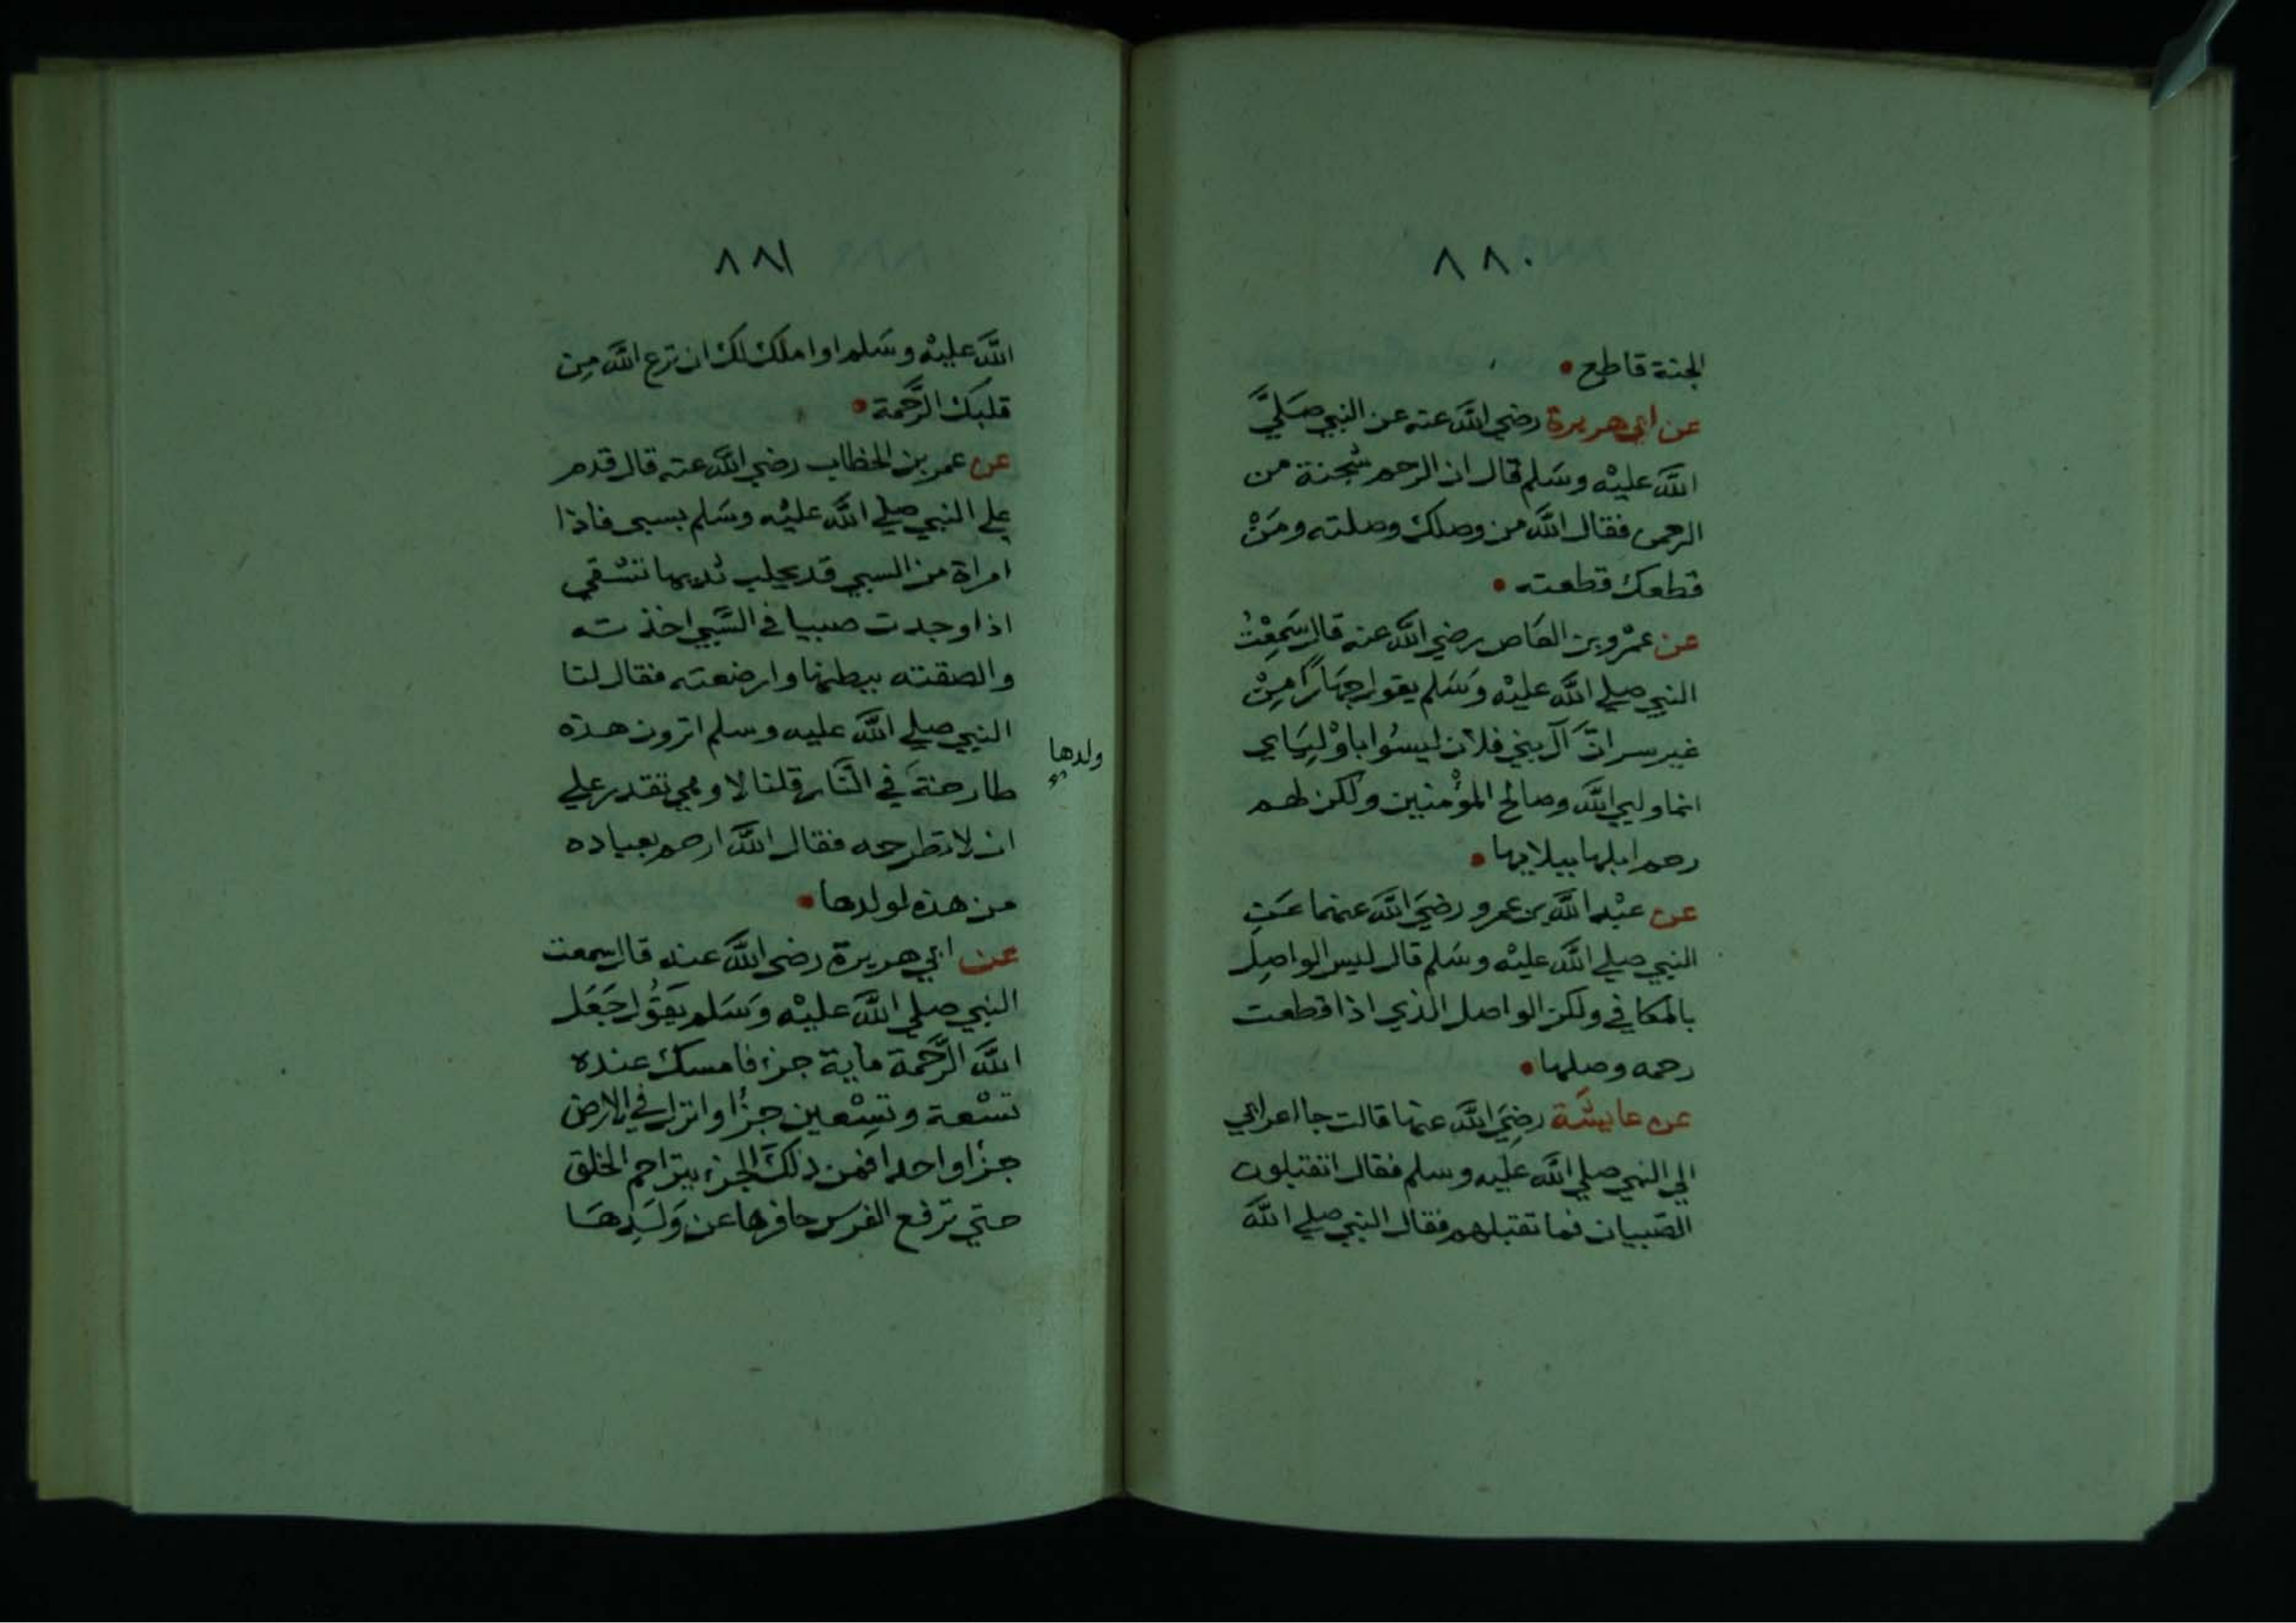 ٨٨٠
الجنة قاطع
عن ابي هريرة رضي الله عنه عن النبي صَلَيَّ
الله عليْه وسَلم قال ان الرحم شجنة من
الرحمن فقال الله من وصلك وصلته ومَنْ
قطعك قطعته
عن عمْرو بن العَاص رضي الله عنه قال سَمِعْتُ
النبي صلي الله عليْه وَسَلم يقول جهَارًا مِنْ
غير سر انَّ آل بني فلان ليسُوا باوْلِيَايي
انما وليي الله وصالح المؤْمنين ولكن لهم
رحم ابلها ببلايها
عن عبْد الله بن عمرو رضيَ الله عنهما عَن
النبي صلي الله عليْه وسَلم قال ليس الواصِل
بالمكافي ولكن الواصل الذي اذا قطعت
رحمه وصلها
عن عايشَة رضِيَ الله عنها قالت جا اعرابي
الي النبي صلي الله عليه وسلم فقال اتقبلون
الصّبيان فما تقبلهم فقال النبي صلي الله
٨٨١
الله عليْه وسَلم اوا ملك لك ان نزع الله مِن
قلبك الرَّحمة
عن عمر بن الخطاب رضي الله عنه قال قدم
علي النبي صلي الله عليْه وسَلم بسبي فاذا
امراة من السبي قد يحلب ثديها تسْقي
اذا وجدت صبيا في السَّبي اخذته
والصقته ببطنها وارضعته فقال لنا
النبي صلي الله عليه وسلم اترون هذه
طارحة في النَّار قلنا لا وهي تقدر علي
ولدها
ان لا تطرحه فقال الله ارحم بعباده
من هذه لولدها
عن ابي هريرة رضي الله عنه قال سمعت
النبي صلي الله عليْه وَسَلم يَقُول جَعَل
الله الرَّحمة ماية جزء فامسك عنده
تسْعة وتسِعين جزُا وانزل في الارض
جزا واحدا فمن ذلكَ الجزء يتراحم الخلق
حتي ترفع الفرس حافرها عن وَلَدِهَا